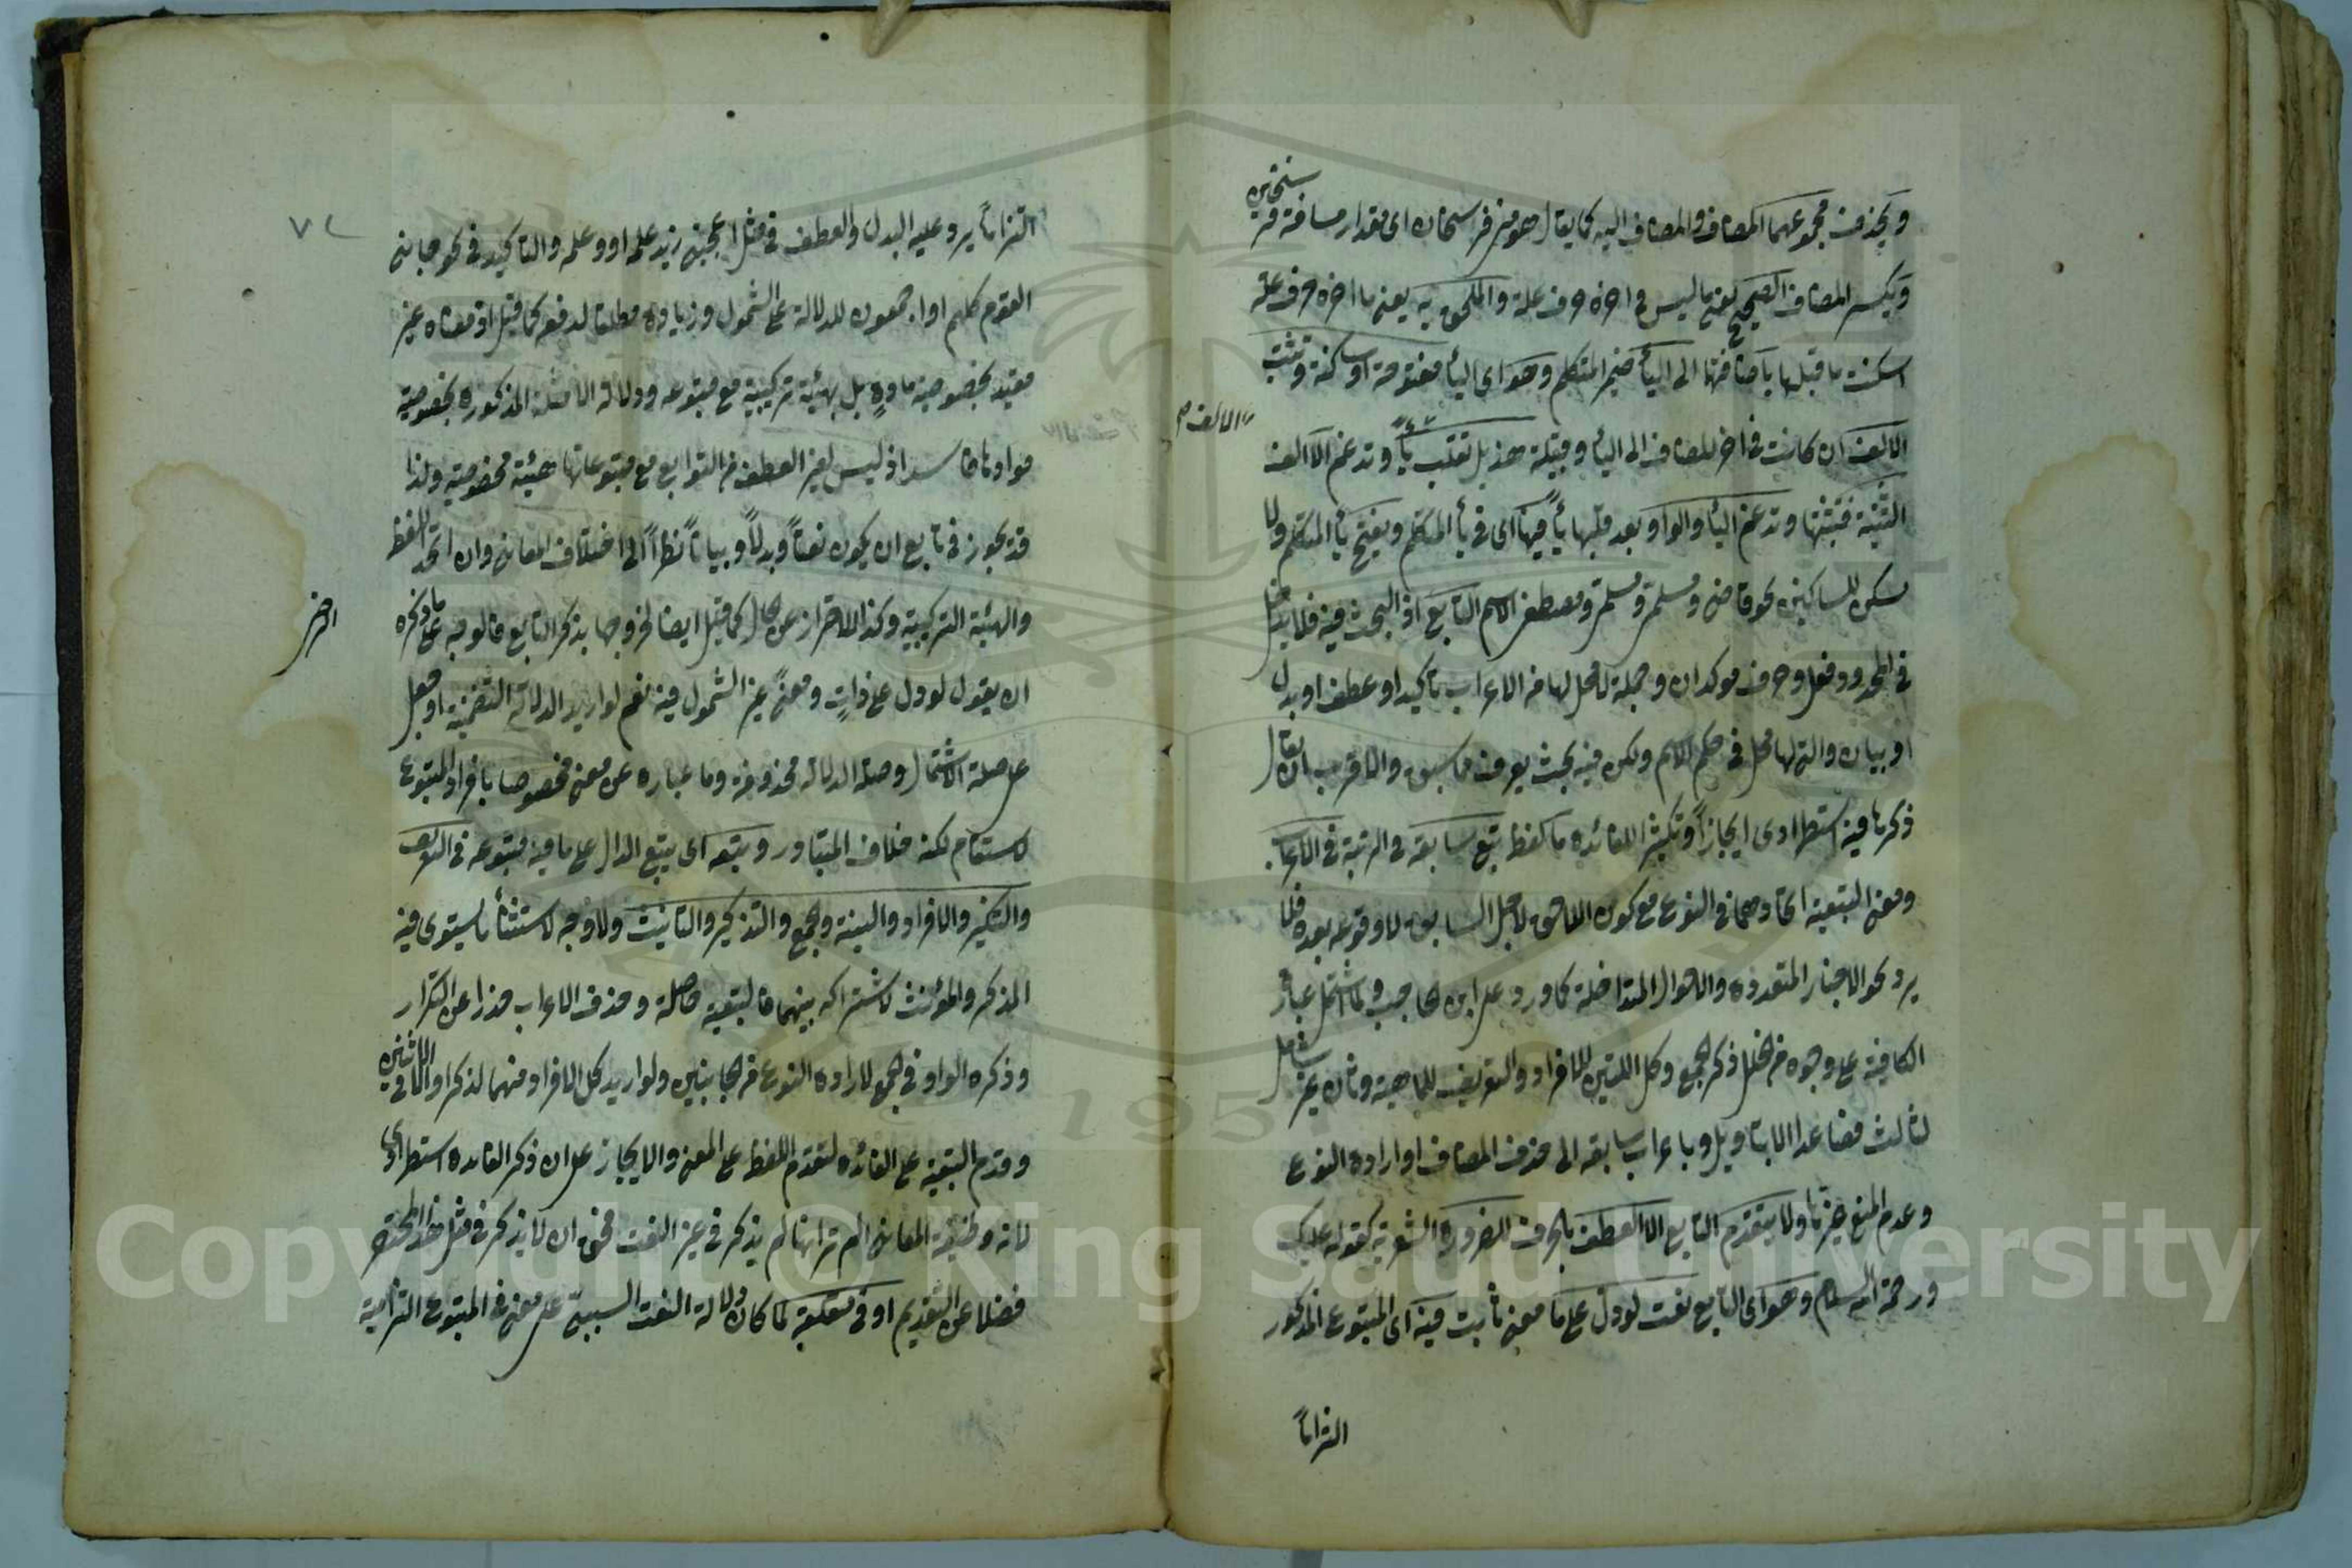 ويحذف مجموعهما المضاف والمضاف اليه كما يقال هو مني فرسخان اى مقدار مسافة فرسخين
ويكسر المضاف الصحيح يعنى ما ليس فى اخره حرف علة والملحق به يعنى ما اخره حرف علة
اسكنت ما قبلها باضافتها الى الياء ضمير المتكلم وهو اى الياء مفتوحة او ساكنة وتثبت
الالف ان كانت فى اخر المضاف الى الياء وقبيلة هذيل تقلب ياء وتدغم الا الف
الالف
التثنية فتثبتها وتدغم الياء والواو بعد قلبها ياء فيها اى فى ياء المتكلم ويفتح ياء المتكلم ولا
يسكن للساكنين نحو قاضى ومسلمى ومسلمى ومصطفى الاسم التابع اذ البحث فيه فلا يدخل
فى الحدود فعل وحرف موكدان وجملة لا محل لها من الاعراب تاكيد او عطف او بدل
او بيان والتى لها محل فى حكم الاسم ولكن فيه بحث يعرف مما سبق والاقرب ان يقال
ذكرها فيه استطرادى ايجازا وتكثيرا للفائدة ما كلفظ يتبع سابقه فى الرتبة فى الاعراب
ومعنى التبعية اتحادهما فى النوع مع كون اللاحق لاجل السابق لا وقوعه بعده فلا
يرد نحو الاخبار المتعددة والاحوال المتداخلة كما ورد على ابن الحاجب ولما اشتمل عبارة
الكافية على وجوه من الخلل ذكر الجمع وكل اللتين للافراد والتعريف للماهية وثان غير شامل
لثالث فصاعدا الا بتاويل وباعراب سابقه الى حذف المضاف او ارادة النوع
وعدم المنع غيرها ولا يتقدم التابع الا العطف بالحرف لضرورة الشعرية كقوله عليك
ورحمة الله السلام وهو اى التابع نعت لو دل على ما معنى ثابت فيه اى المتبوع المذكور
التزاما
٧٢
التزاما يرد عليه البدل والعطف فى مثل اعجبنى زيد علمه او وعلمه والتاكيد فى نحو جاءنى
القوم كلهم او اجمعون للدلالة على الشمول وزيادة مطلقا لدفعه كما قيل اذ معناه غير
مقيد بخصوصية مادة بل بهيئة تركيبية مع متبوعه ودلالة الامثلة المذكورة بخصوصية
موادها فاسد اذ ليس لغير العطف من التوابع مع متبوعاتها هيئة مخصوصة ولذا
قد يجوز فى تابع ان يكون نعتا وبدلا وبيانا نظرا الى اختلاف المعانى وان اتحد اللفظ
والهيئة التركيبية وكذا الاحتراز عن الحال كما قيل ايضا لخروجها بذكر التابع فالوجه على ما ذكره
ان يقول لو دل على ذات ومعنى غير الشمول فيه نعم لو اريد الدلالة التضمنية او جعل
على صلة الاشتمال وصلة الدلالة محذوفة وما عبارة عن معنى مخصوصا بافراد المتبوع
لاستقام لكنه خلاف المتبادر ويتبعه اى يتبع الدال على ما فيه متبوعه فى التعريف
والتنكير والافراد والتثنية والجمع والتذكير والتانيث ولا وجه لاستثناء ما يستوى فيه
المذكر والمؤنث لاشتراكه بينهما فالتبعية حاصلة وحذف الاعراب حذرا عن التكرار
وذكره الواو فى الجمع لارادة النوع من الجانبين ولو اريد كل الافراد منهما لذكر او الا فى الاثنين
وقدم التبعية على الفائدة لتقدم اللفظ على المعنى والايجاز على ان ذكر الفائدة استطرادى
لانه وظيفة المعانى الم تر انها لم يذكر فى غير النعت فحق ان لا يذكر فى مثل هذا المختصر
فضلا عن التقديم او فى متعلقه لما كان دلالة النعت السببى على معنى فى المتبوع التزامية